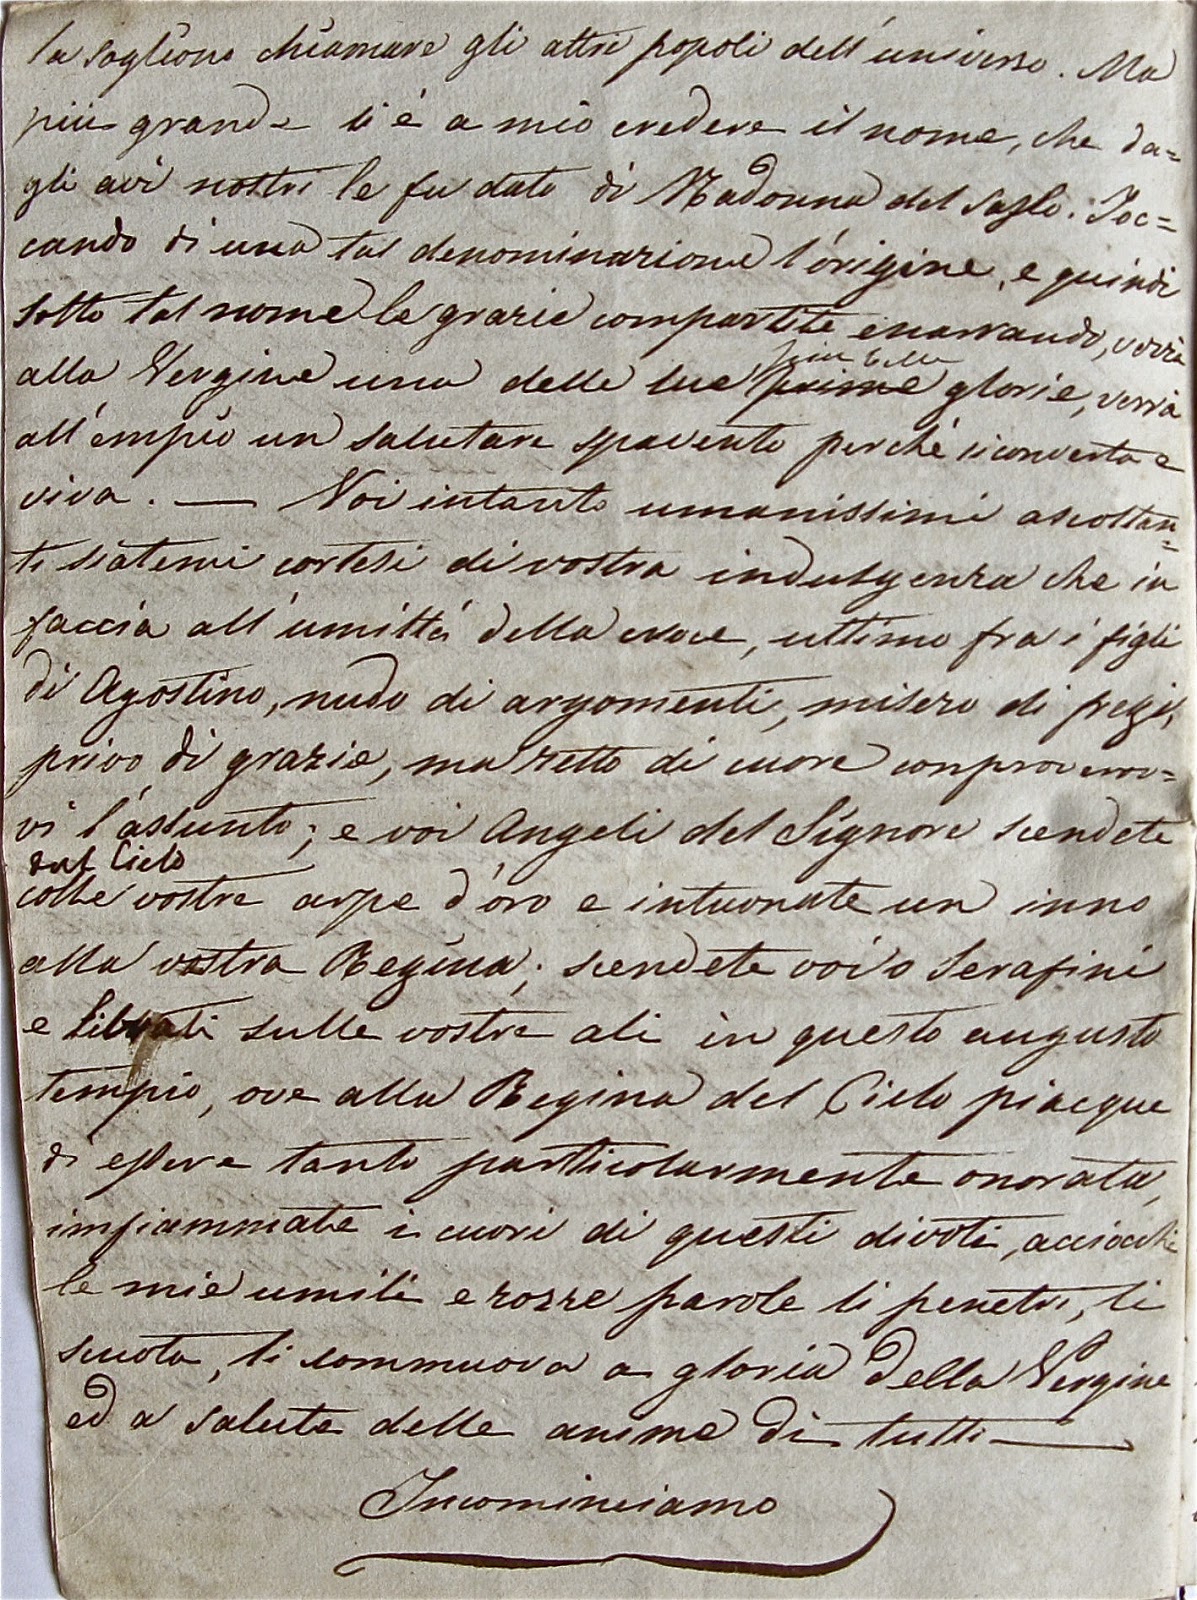 la sogliono chiamare gli altri popoli dell'universo. Ma
più grande si è a mio credere il nome, che da=
gli avi nostri le fu dato di Madonna del Sasso. Toc=
cando di una tal denominazione l'origine, e quindi
sotto tal nome le grazie compartite enarrando, verrà
più belle
alla Vergine una delle sue prime glorie, verrà
all'empio un salutare spavento perché si converta e
viva. — Voi intanto umanissimi ascoltan=
ti siatemi cortesi di vostra indulgenza che in
faccia all'umiltà della voce, ultimo fra i figli
di Agostino, nudo di argomenti, misero di pregi,
privo di grazie, ma retto di cuore comproverov=
vi l'assunto; e voi Angeli del Signore scendete
dal Cielo
colle vostre arpe d'oro e intuonate un inno
alla vostra Regina; scendete voi o Serafini
e librati sulle vostre ali in questo augusto
tempio, ove alla Regina del Cielo piacque
di essere tanto particolarmente onorata,
infiammate i cuori di questi divoti, acciocché
le mie umili e rozze parole li penetri, li
scuota, li commuova a gloria della Vergine
ed a salute delle anime di tutti —
Incominciamo